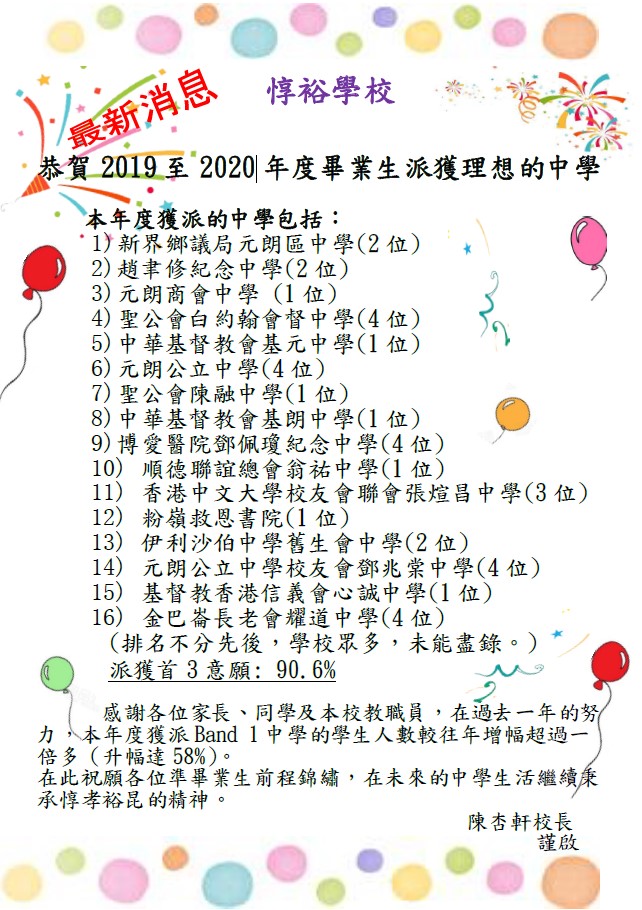 最新消息
惇裕學校
恭賀 2019 至 2020 年度畢業生派獲理想的中學
本年度獲派的中學包括：
1)新界鄉議局元朗區中學(2 位)
2)趙聿修紀念中學(2 位)
3)元朗商會中學 (1 位)
4)聖公會白約翰會督中學(4 位)
5)中華基督教會基元中學(1 位)
6)元朗公立中學(4 位)
7)聖公會陳融中學(1 位)
8)中華基督教會基朗中學(1 位)
9)博愛醫院鄧佩瓊紀念中學(4 位)
10) 順德聯誼總會翁祐中學(1 位)
11) 香港中文大學校友會聯會張煊昌中學(3 位)
12) 粉嶺救恩書院(1 位)
13) 伊利沙伯中學舊生會中學(2 位)
14) 元朗公立中學校友會鄧兆棠中學(4 位)
15) 基督教香港信義會心誠中學(1 位)
16) 金巴崙長老會耀道中學(4 位)
(排名不分先後，學校眾多，未能盡錄。)
派獲首 3 意願: 90.6%
感謝各位家長、同學及本校教職員，在過去一年的努
力，本年度獲派 Band 1 中學的學生人數較往年增幅超過一
倍多（升幅達 58%)。
在此祝願各位準畢業生前程錦繡，在未來的中學生活繼續秉
承惇孝裕昆的精神。
陳杏軒校長
謹啟